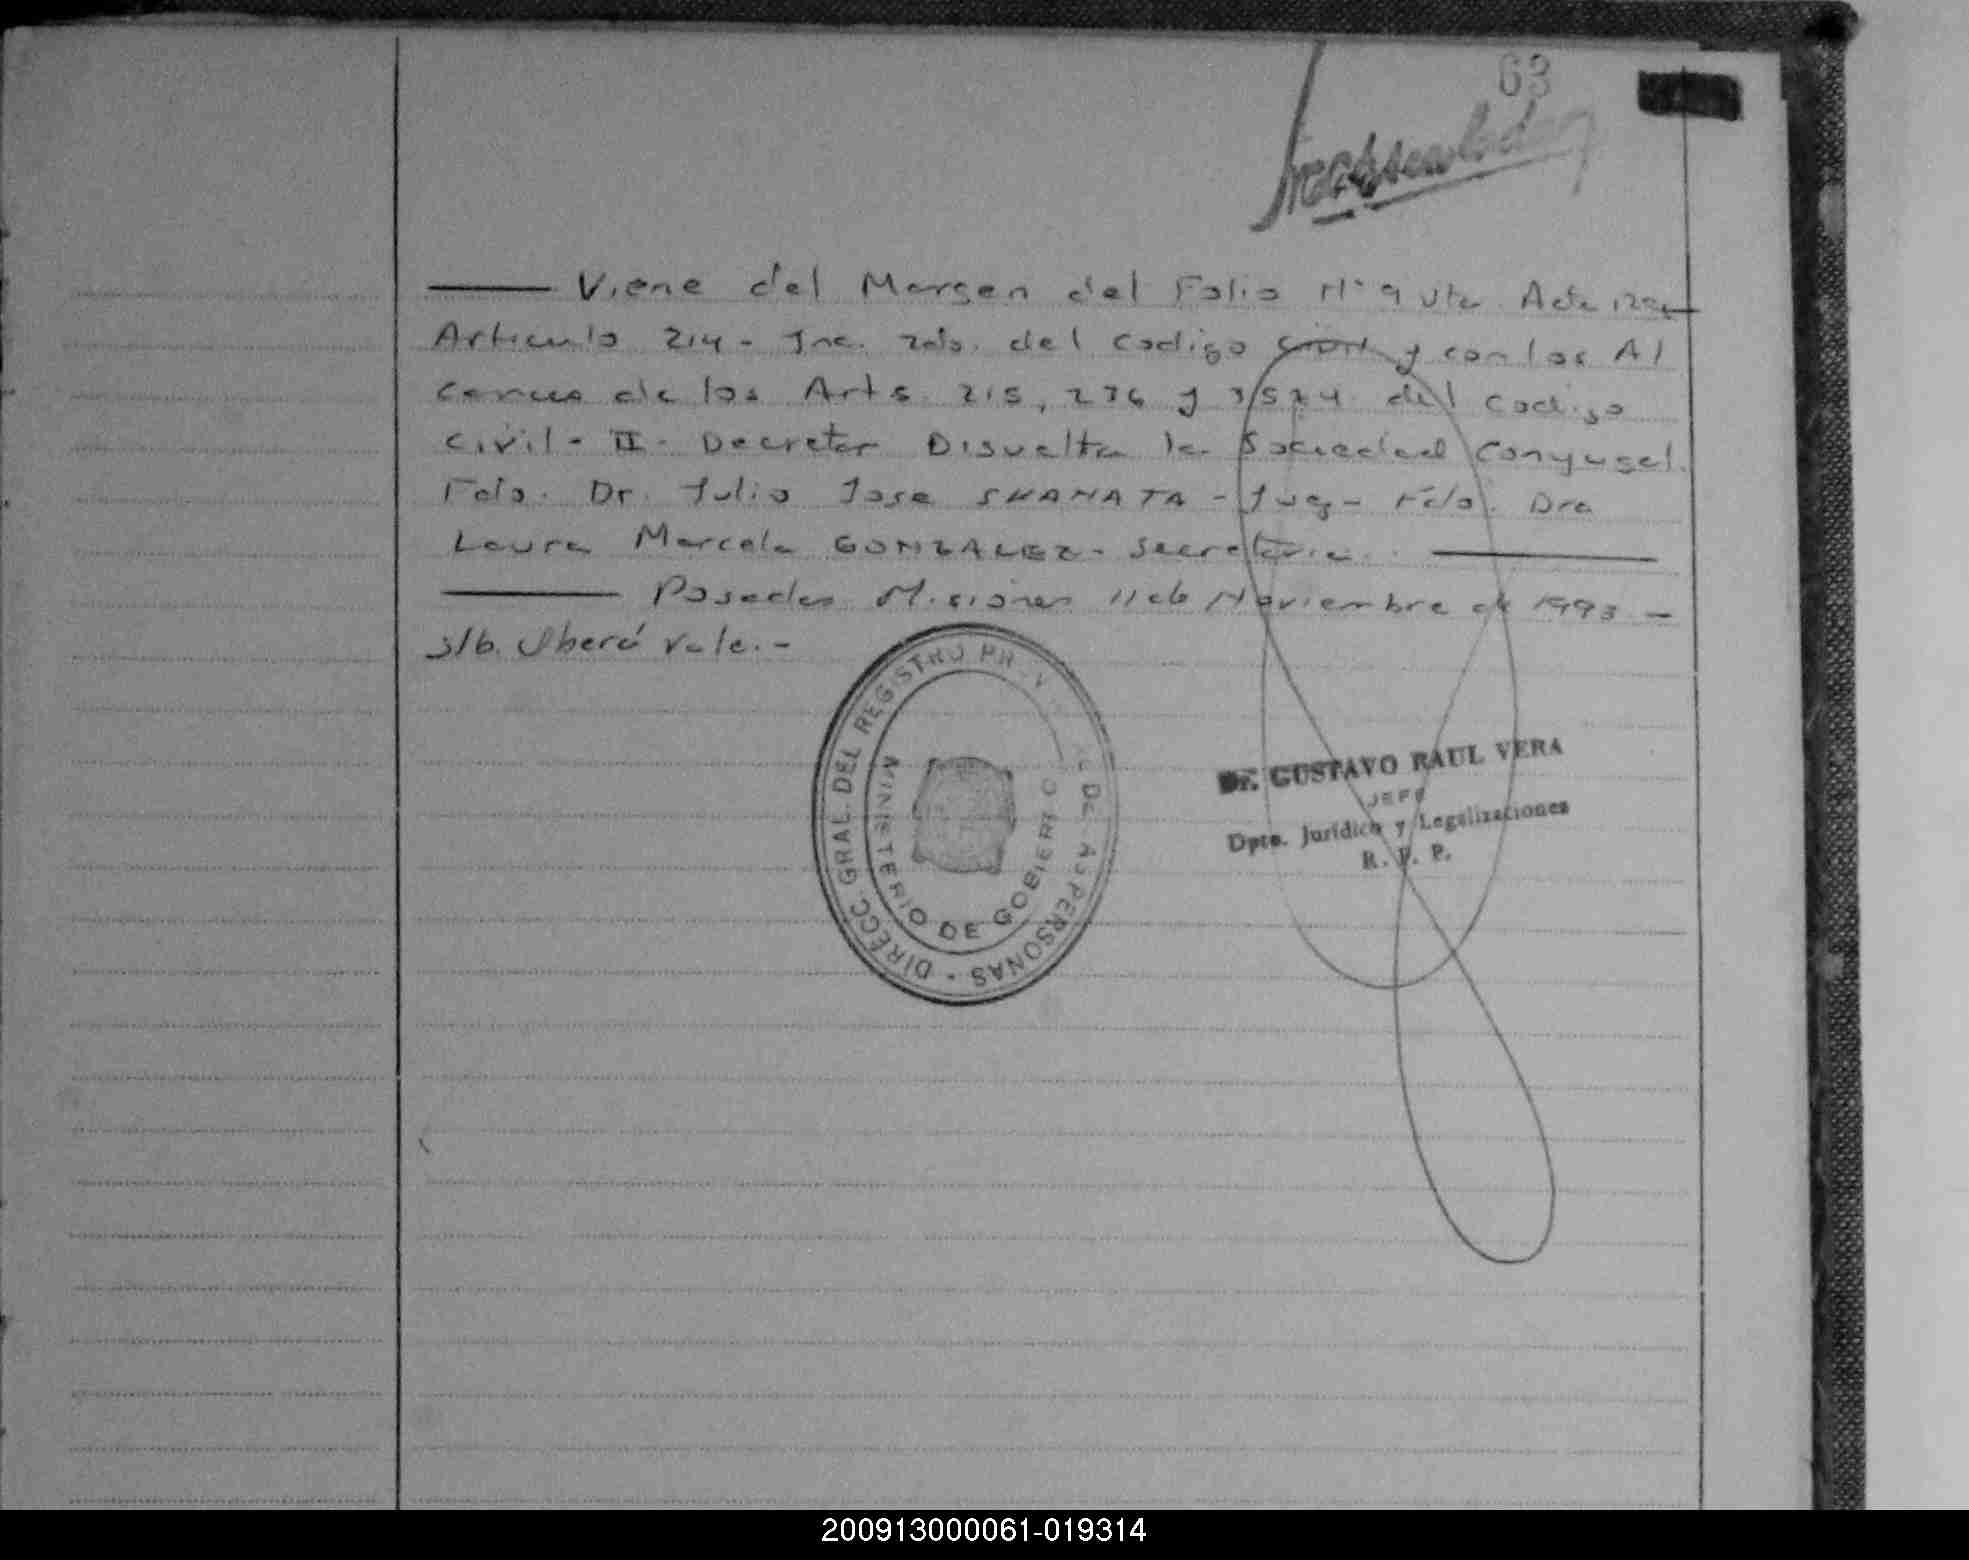 63
Viene del Margen del Folio N° 9 vta. Acta
Articulo 214 - Inc. 2do. del Codigo Civil y con los Al
cances de los Arts. 215, 236 y 3574 del Codigo
Civil - II - Decretar Disuelta la Sociedad Conyugal.
Fdo. Dr. Julio Jose - Juez - Fdo. Dra
Laura Marcela GONZALEZ - Secretaria.
Posadas Misiones 11 de Noviembre de 1993 -
s/b. Oberá vale. -
DIRECC. GRAL. DEL REGISTRO PROVINCIAL DE LAS PERSONAS -
MINISTERIO DE GOBIERNO
Dr. GUSTAVO RAUL VERA
JEFE
Dpto. Jurídico y Legalizaciones
R. P. P.
200913000061-019314